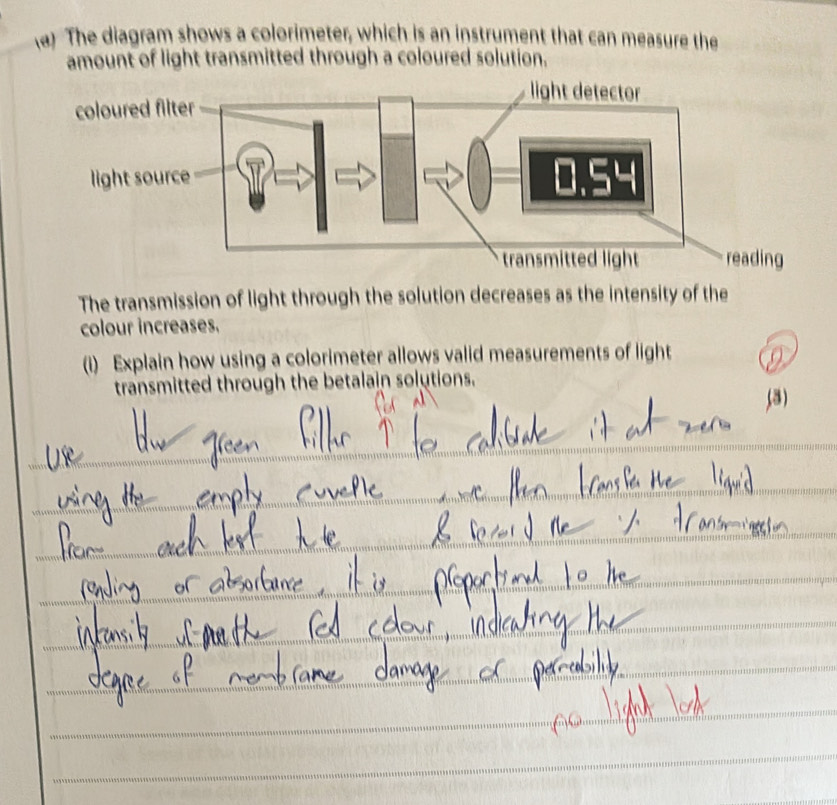 (a) The diagram shows a colorimeter, which is an instrument that can measure the
amount of light transmitted through a coloured solution.
light detector
coloured filter
light source
0.54
transmitted light
reading
The transmission of light through the solution decreases as the intensity of the
colour increases.
(i) Explain how using a colorimeter allows valid measurements of light
transmitted through the betalain solutions.
(3)
for all
use green filter ↑ to calibrate it at zero
using the empty cuvette, we then transfer the liquid
from each test & record the %
reading or absorbance, it is proportional to the
intensity the red colour, indicating the
degree of membrane damage or permeability.
no light lost